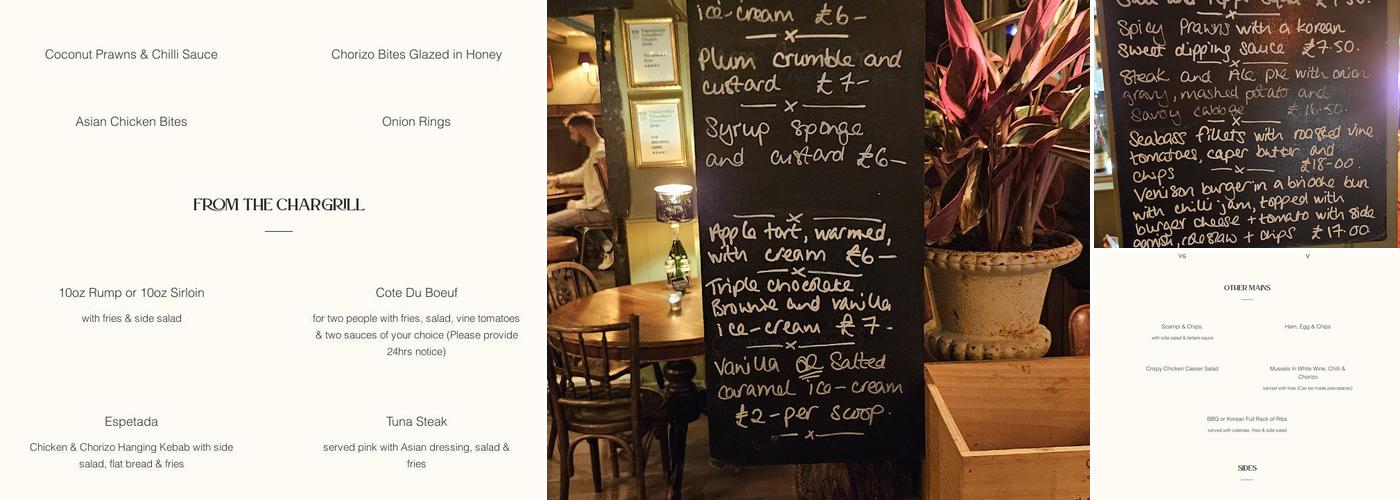 Coconut Prawns & Chilli Sauce
Chorizo Bites Glazed in Honey
Asian Chicken Bites
Onion Rings
FROM THE CHARGRILL
10oz Rump or 10oz Sirloin
with fries & side salad
Cote Du Boeuf
for two people with fries, salad, vine tomatoes
& two sauces of your choice (Please provide
24hrs notice)
Espetada
Chicken & Chorizo Hanging Kebab with side
salad, flat bread & fries
Tuna Steak
served pink with Asian dressing, salad &
fries
ice-cream £6-
Plum crumble and
custard £7-
Syrup sponge
and custard £6-
Apple tart, warmed,
with cream £6-
Triple chocolate
Brownie and vanilla
ice-cream £7-
Vanilla OR Salted
caramel ice-cream
£2-per scoop.
Spicy Prawns with a korean
sweet dipping sauce £7.50.
Steak and Ale pie with onion
gravy, mashed potato and
Savoy cabbage £16.50.
Seabass fillets with roasted vine
tomatoes, caper butter and
chips £18-00.
Venison burger in a brioche bun
with chilli jam, topped with
burger cheese + tomato with side
garnish, coleslaw + chips £17.00
VG
V
OTHER MAINS
Scampi & Chips,
with side salad & tartare sauce
Ham, Egg & Chips
Crispy Chicken Caeser Salad
Mussels In White Wine, Chilli &
Chorizo
served with fries (Can be made pescatarian)
BBQ or Korean Full Rack of Ribs
served with coleslaw, fries & side salad
SIDES